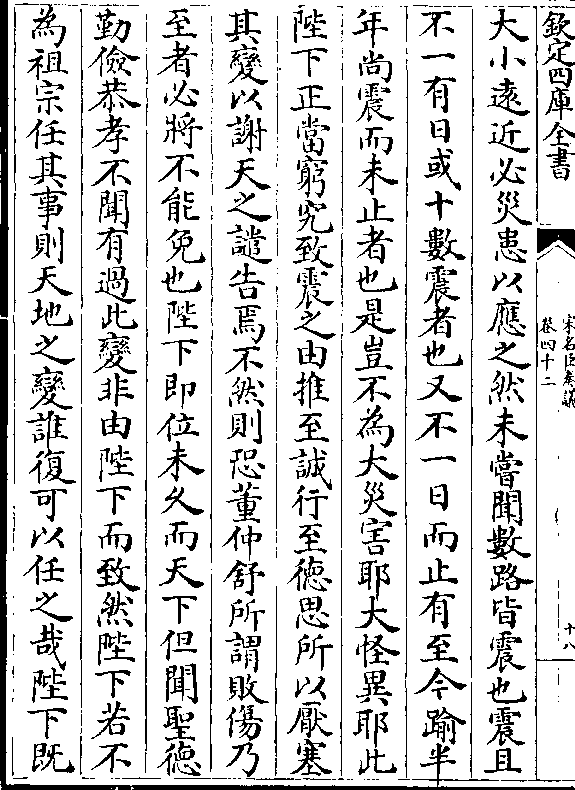 欽定四庫全書
宋名臣奏議
卷四十二
十八
大小遠近必災患以應之然未嘗聞數路皆震也震且
不一有日或十數震者也又不一日而止有至今踰半
年尚震而未止者也是豈不為大災害耶大怪異耶此
陛下正當窮究致震之由推至誠行至徳思所以厭塞
其變以謝天之譴告焉不然則恐董仲舒所謂敗傷乃
至者必將不能免也陛下即位未久而天下但聞聖徳
勤儉恭孝不聞有過此變非由陛下而致然陛下若不
為祖宗任其事則天地之變誰復可以任之哉陛下既